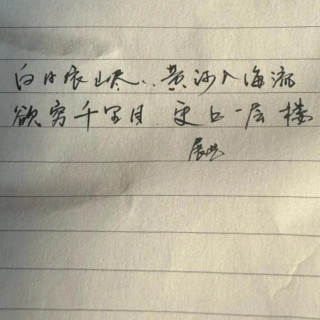 白日依山尽..黄河入海流
欲穷千里目.更上一层楼